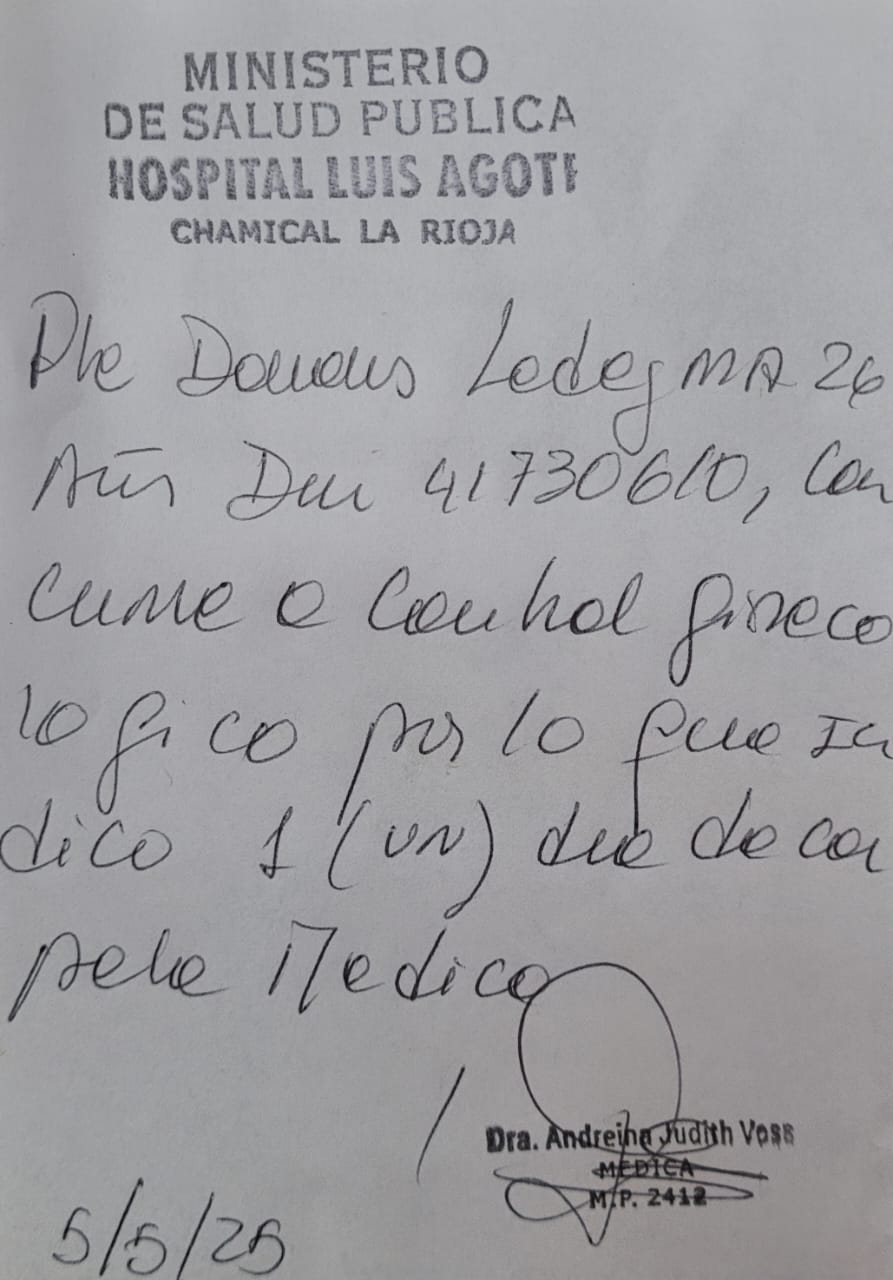 MINISTERIO
DE SALUD PUBLICA
HOSPITAL LUIS AGOTE
CHAMICAL LA RIOJA
Pte Ledesma 26
Años Dni 41730610, Con
curre a Control gineco
logico por lo que in
dico 1 (UN) dia de car
peta Medica
Dra. Andreina Judith Voss
MEDICA
M.P. 2412
5/5/25